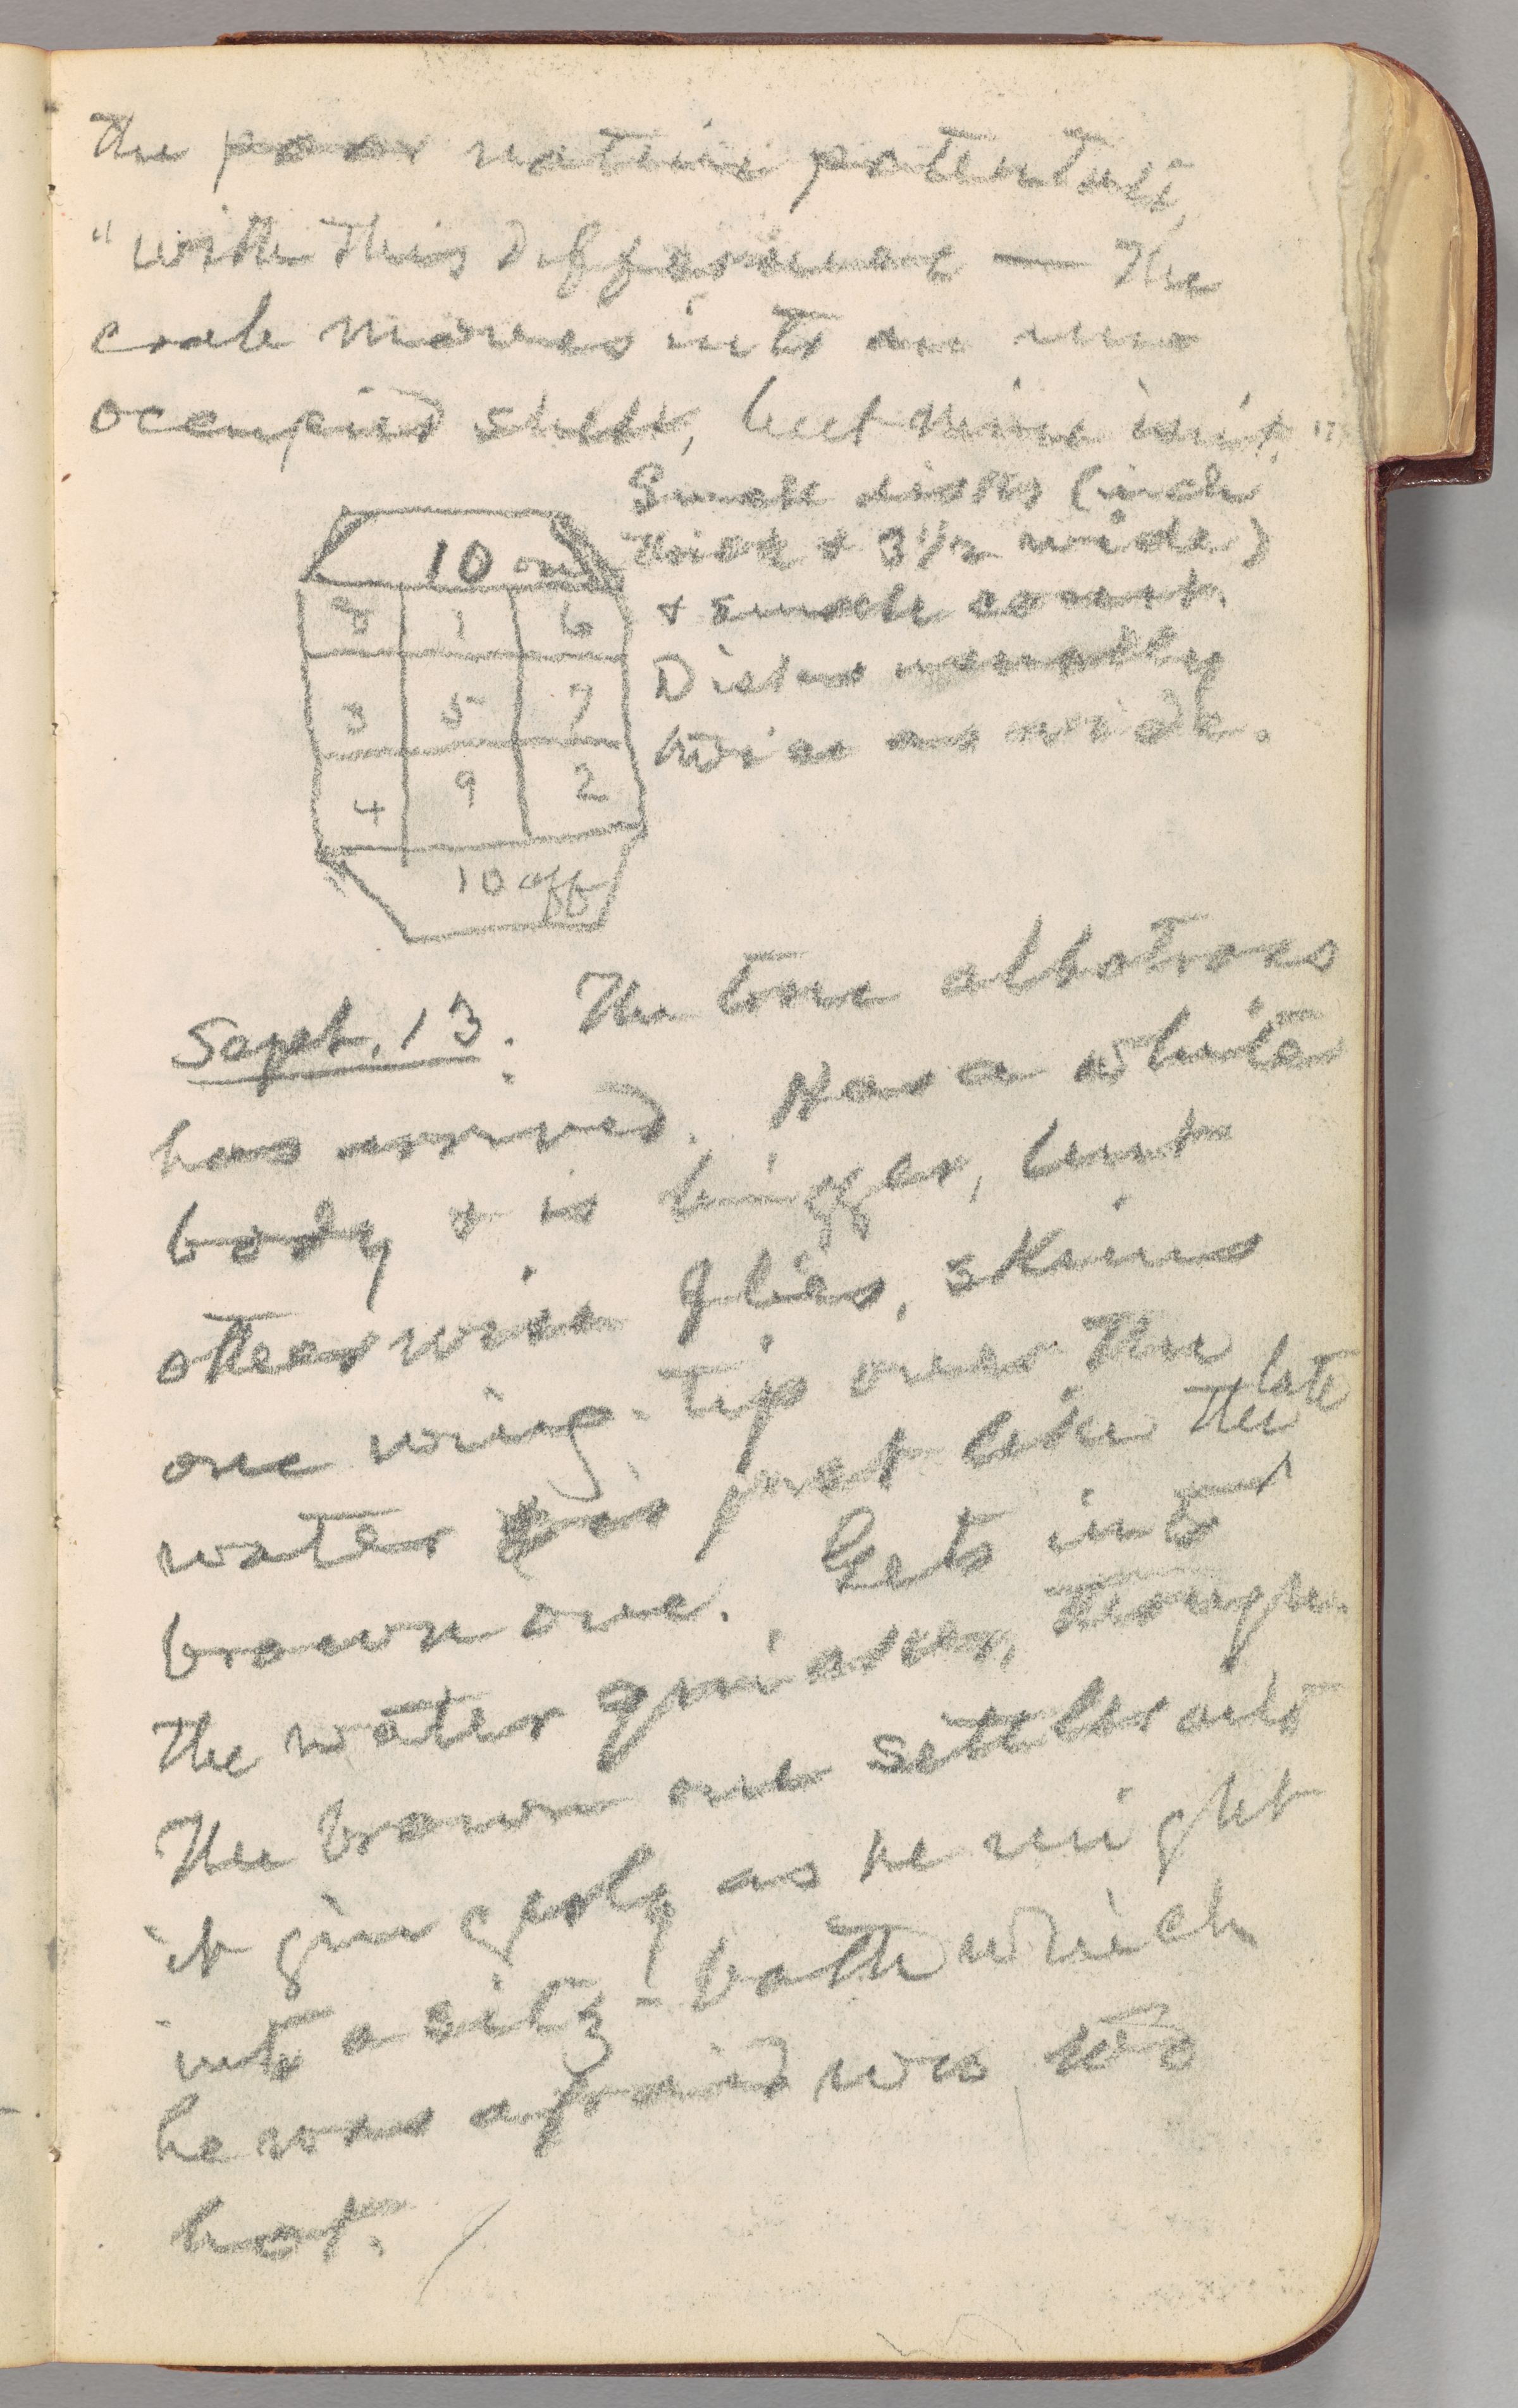 the poor native potentate,
"with this difference — the
crab moves into an un-
occupied shell, but mine isn't."
Small disks (inch
thick & 3 1/2 wide)
& small court.
Disks usually
twice as wide.
10 on
8 1 6
3 5 7
4 9 2
10 off
Sept. 13. The true albatross
has arrived. Has a white
body & is bigger, but
otherwise flies, skims
one wing-tip over the
water & is just like the late
brown one. Gets into
the water quicker, though.
The brown one settles into
it gingerly as he might
into a sitz-bath which
he was afraid was too
hot.